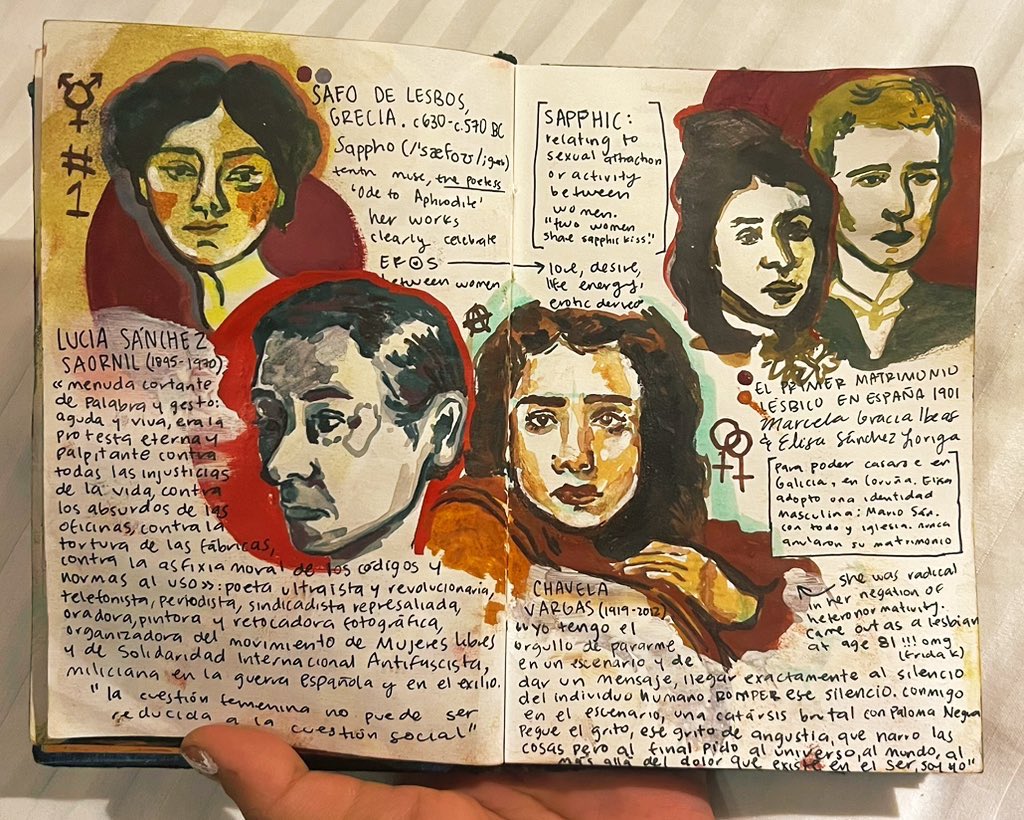 #
1
SAFO DE LESBOS,
GRECIA. c630-c.570 BC
Sappho (/'sæfoʊ/;
tenth muse, the poetess
'Ode to Aphrodite'
her works
clearly celebrate
EROS
between women
SAPPHIC:
relating to
sexual attraction
or activity
between
women.
"two women
share sapphic kiss!"
love, desire,
life energy,
erotic
LUCIA SÁNCHEZ
SAORNIL (1895-1970)
«menuda cortante
de palabra y gesto:
aguda y viva, era la
protesta eterna y
palpitante contra
todas las injusticias
de la vida, contra
los absurdos de las
oficinas, contra la
tortura de las fábricas,
contra la asfixia moral de los codigos y
normas al uso»: poeta ultraista y revolucionaria,
telefonista, periodista, sindicadista represaliada,
oradora, pintora y retocadora fotográfica,
organizadora del movimiento de Mujeres libres
y de Solidaridad Internacional Antifascista,
miliciana en la guerra española y en el exilio.
"la cuestión femenina no puede ser
reducida a la cuestión social"
EL PRIMER MATRIMONIO
LÉSBICO EN ESPAÑA 1901
Marcela Gracia Ibeas
& Elisa Sánchez Loriga
Para poder casarse en
Galicia, en Coruña. Elisa
adopto una identidad
masculina: Mario Sán.
con todo y iglesia. nunca
anularon su matrimonio
she was radical
in her negation of
heteronormativity.
came out as a lesbian
at age 81!!! omg
(frida k)
CHAVELA
VARGAS (1919-2012)
"yo tengo el
orgullo de pararme
en un escenario y de
dar un mensaje, llegar exactamente al silencio
del individuo humano, ROMPER ese silencio. conmigo
en el escenario, una catársis brutal con Paloma Negra
Pegue el grito, ese grito de angustia, que narro las
cosas pero al final pido al universo, al mundo, al
más alla del dolor que existe en el ser, soy yo"